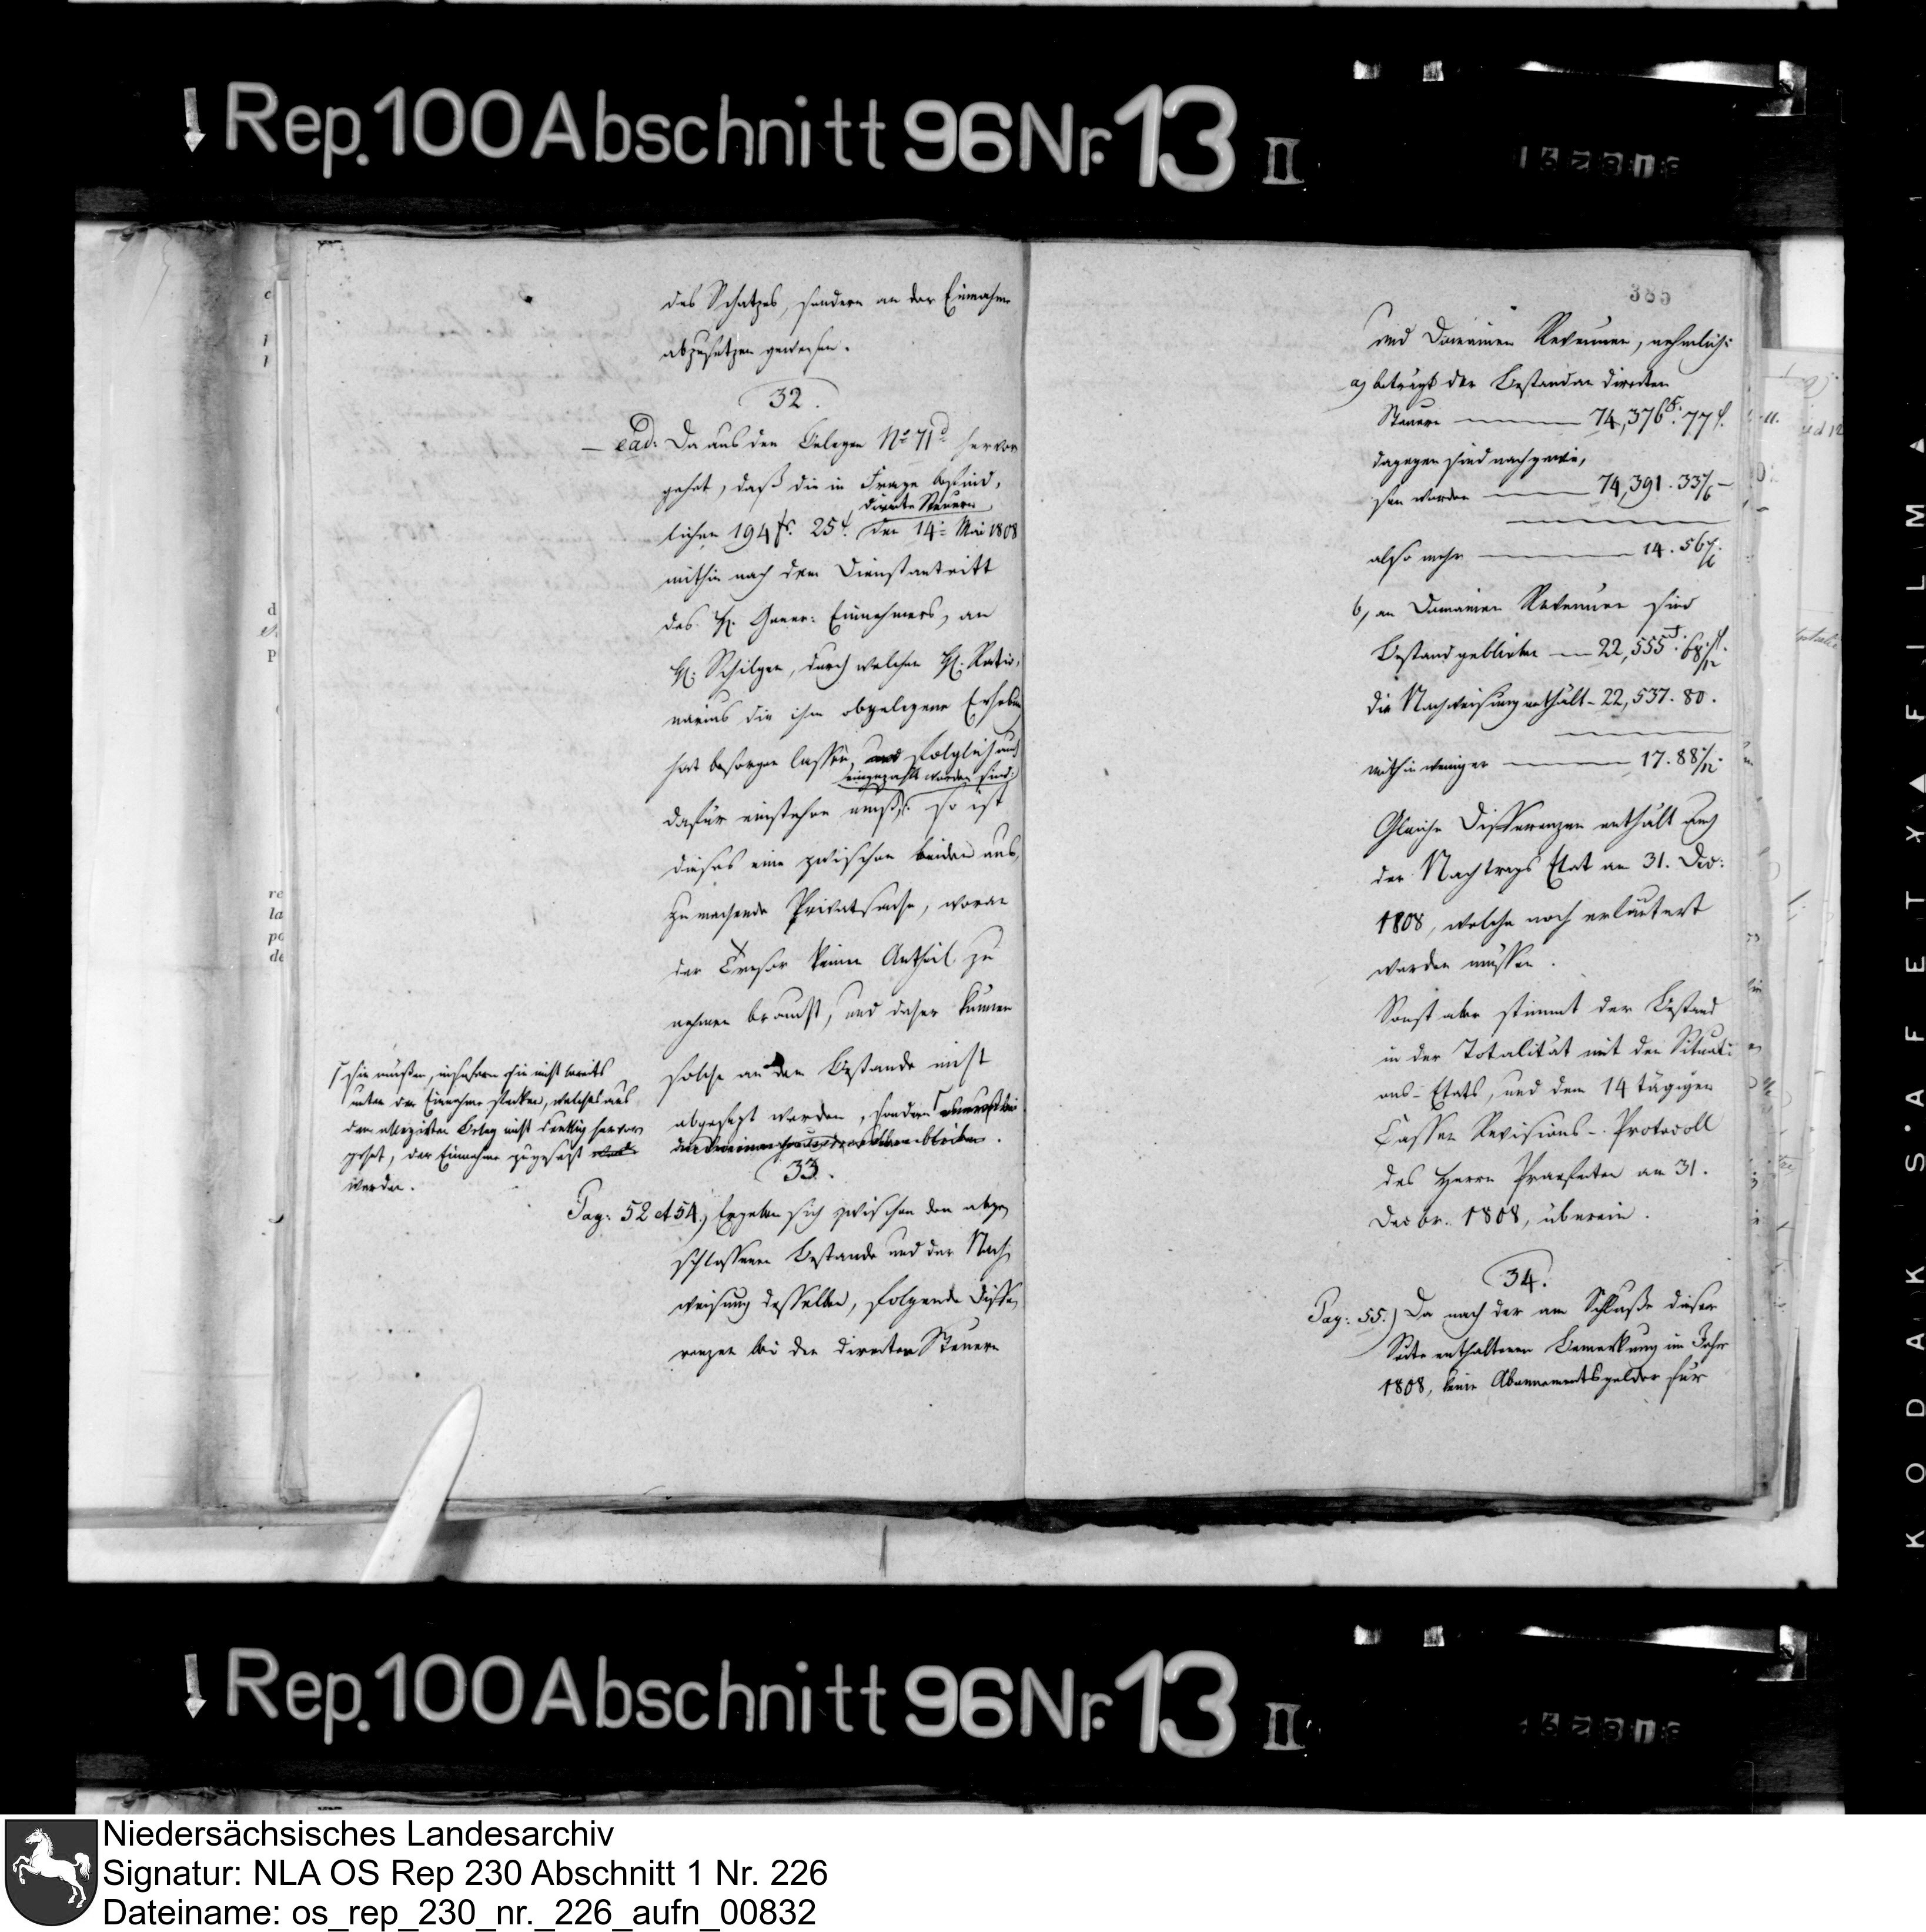 Rep. 100 Abschnitt 96 Nr. 13 II
des Schatzes, sondern an der Einnahme
abzusetzen gewesen.
32.
ead. Da aus den Belegen No 71 hervor
gehet, daß die in Frage befind,
directe Steuern
lichen 194 fr. 25 den 14 Mai 1808
mithin nach dem Dienstantritt
des H. Gener: Einnehmers, an
H. Schilgen, durch welchen H.
die ihm obgelegene Erhebung
hat besorgen lassen, und folglich auch
eingezahlt worden sind
dafür einstehen muß, so ist
dieses eine zwischen beiden aus,
zumachende Privatsache, woran
der Tresor keinen Antheil zu
nehmen braucht, und daher können
solche an dem Bestande nicht
abgesetzt werden, sondern
sie müßen, insofern sie nicht bereits
unter der Einnahme stecken, welches aus
dem allegirten Beleg nicht deutlich hervor
gehet, der Einnahme zugesetzt
werden.
33.
Pag: 52 et 54.) Ergeben sich zwischen dem abge,
schlossenen Bestande und der Nach,
weisung desselben, folgende Diffe,
renzen bei den directen Steuern
385
und Domainen Revenuen, nehmlich:
a) beträgt der Bestand an directen
Steuern 74,376. 77
dagegen sind nachgewie,
sen worden 74,391. 33
also mehr 14. 56
b, an Domainen Revenuen sind
Bestand geblieben 22,555.
die Nachweisung enthält 22,537. 80.
mithin weniger 17. 88
Gleiche Differenzen enthält auch
der Nachtrags Etat am 31. Dec:
1808, welche noch erläutert
werden müssen.
Sonst aber stimmt der Bestand
in der Totalität mit den Situati
ons-Etats, und dem 14 tägigen
Cassen Revisions-Protocoll
des Herrn Praefecten am 31.
Decbr. 1808, überein.
34.
Pag: 55.) Da nach der am Schluße dieser
Seite enthaltenen Bemerkung im Jahre
1808, keine Abonnementsgelder für
KODAK SAFETY FILM
Rep. 100 Abschnitt 96 Nr. 13 II
Niedersächsisches Landesarchiv
Signatur: NLA OS Rep 230 Abschnitt 1 Nr. 226
Dateiname: os_rep_230_nr._226_aufn_00832